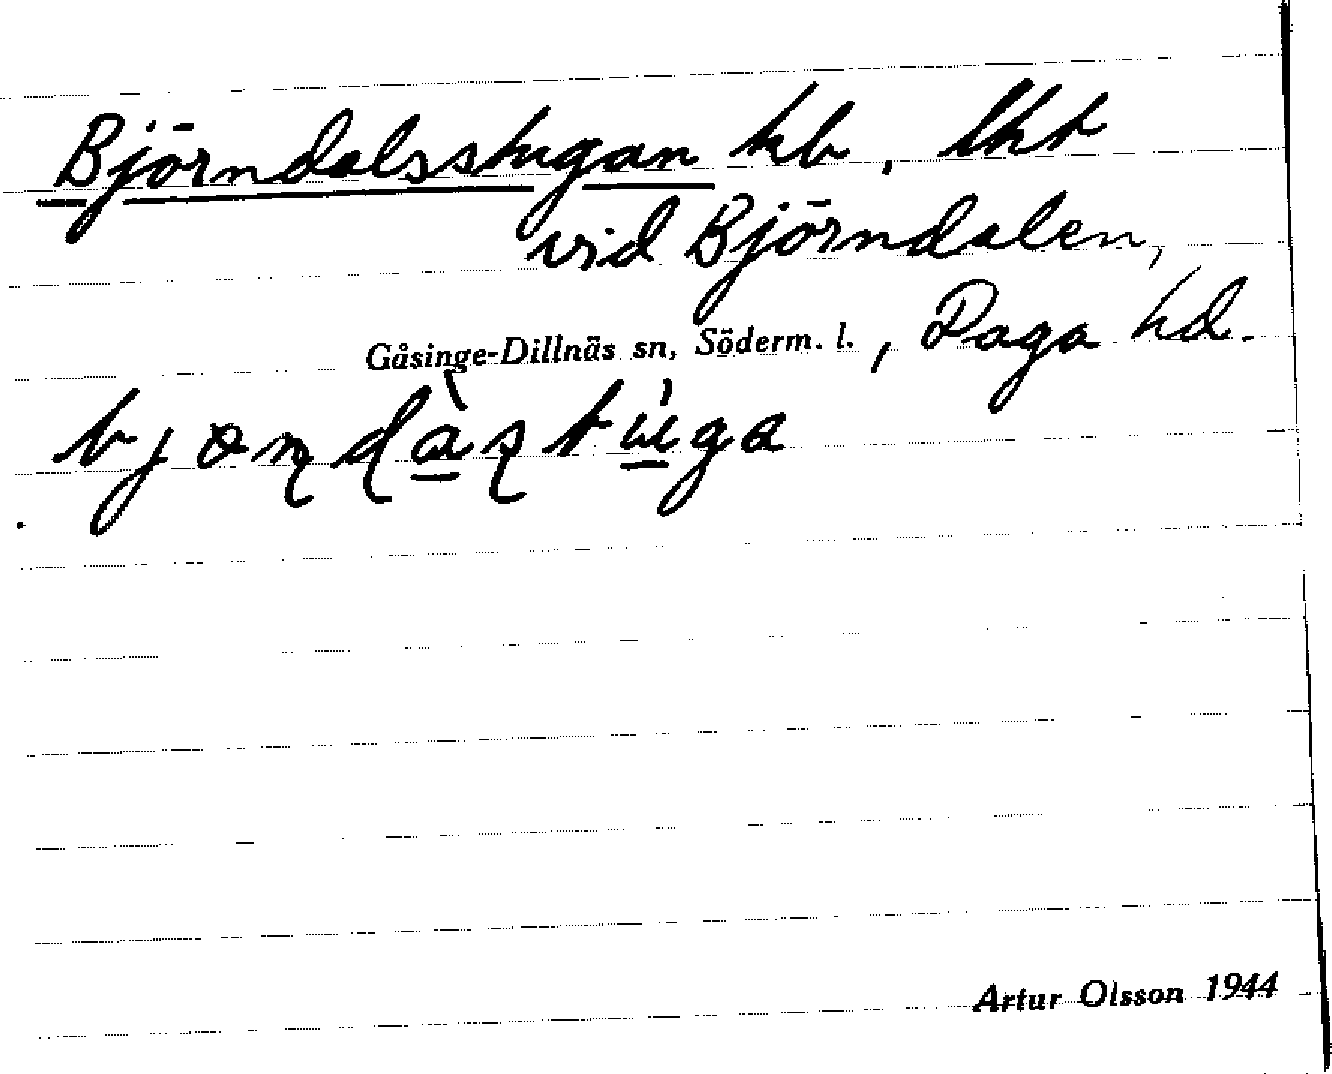 Björndalsstugan kb, lht
vid Björndalen,
Gåsinge-Dillnäs sn, Söderm. l., Daga hd.
Artur Olsson 1944